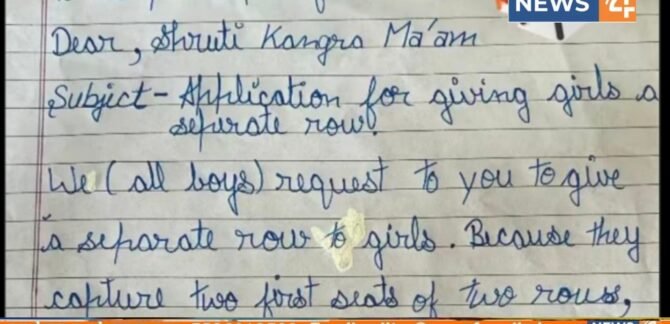 NEWS
Dear, Shruti Kangra Ma'am
Subject - Application for giving girls a
separate row.
We (all boys) request to you to give
a separate row to girls. Because they
capture two first seats of two rows,
NEWS